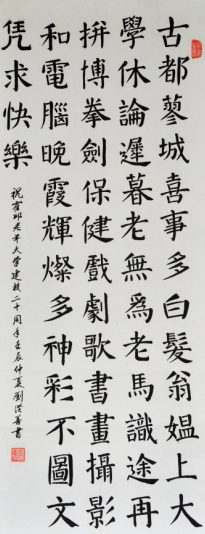 古都蓼城喜事多白髮翁媼上大
學休論遲暮老無為老馬識途再
拚搏拳劍保健戲劇歌書畫攝影
和電腦晚霞輝燦多神彩不圖文
凭求快樂
祝霍邱老年大学建校二十周年壬辰仲夏劉洪善書